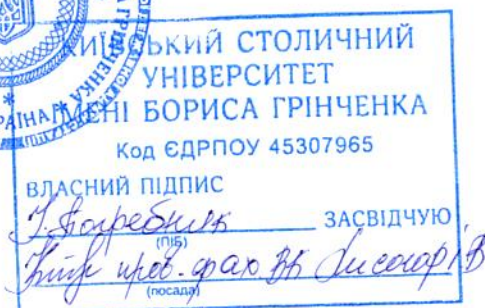 КИЇВСЬКИЙ СТОЛИЧНИЙ
УНІВЕРСИТЕТ
ІМЕНІ БОРИСА ГРІНЧЕНКА
Код ЄДРПОУ 45307965
ВЛАСНИЙ ПІДПИС
І. Погребняк ЗАСВІДЧУЮ
(ПІБ)
пров. фах ВК
(посада)